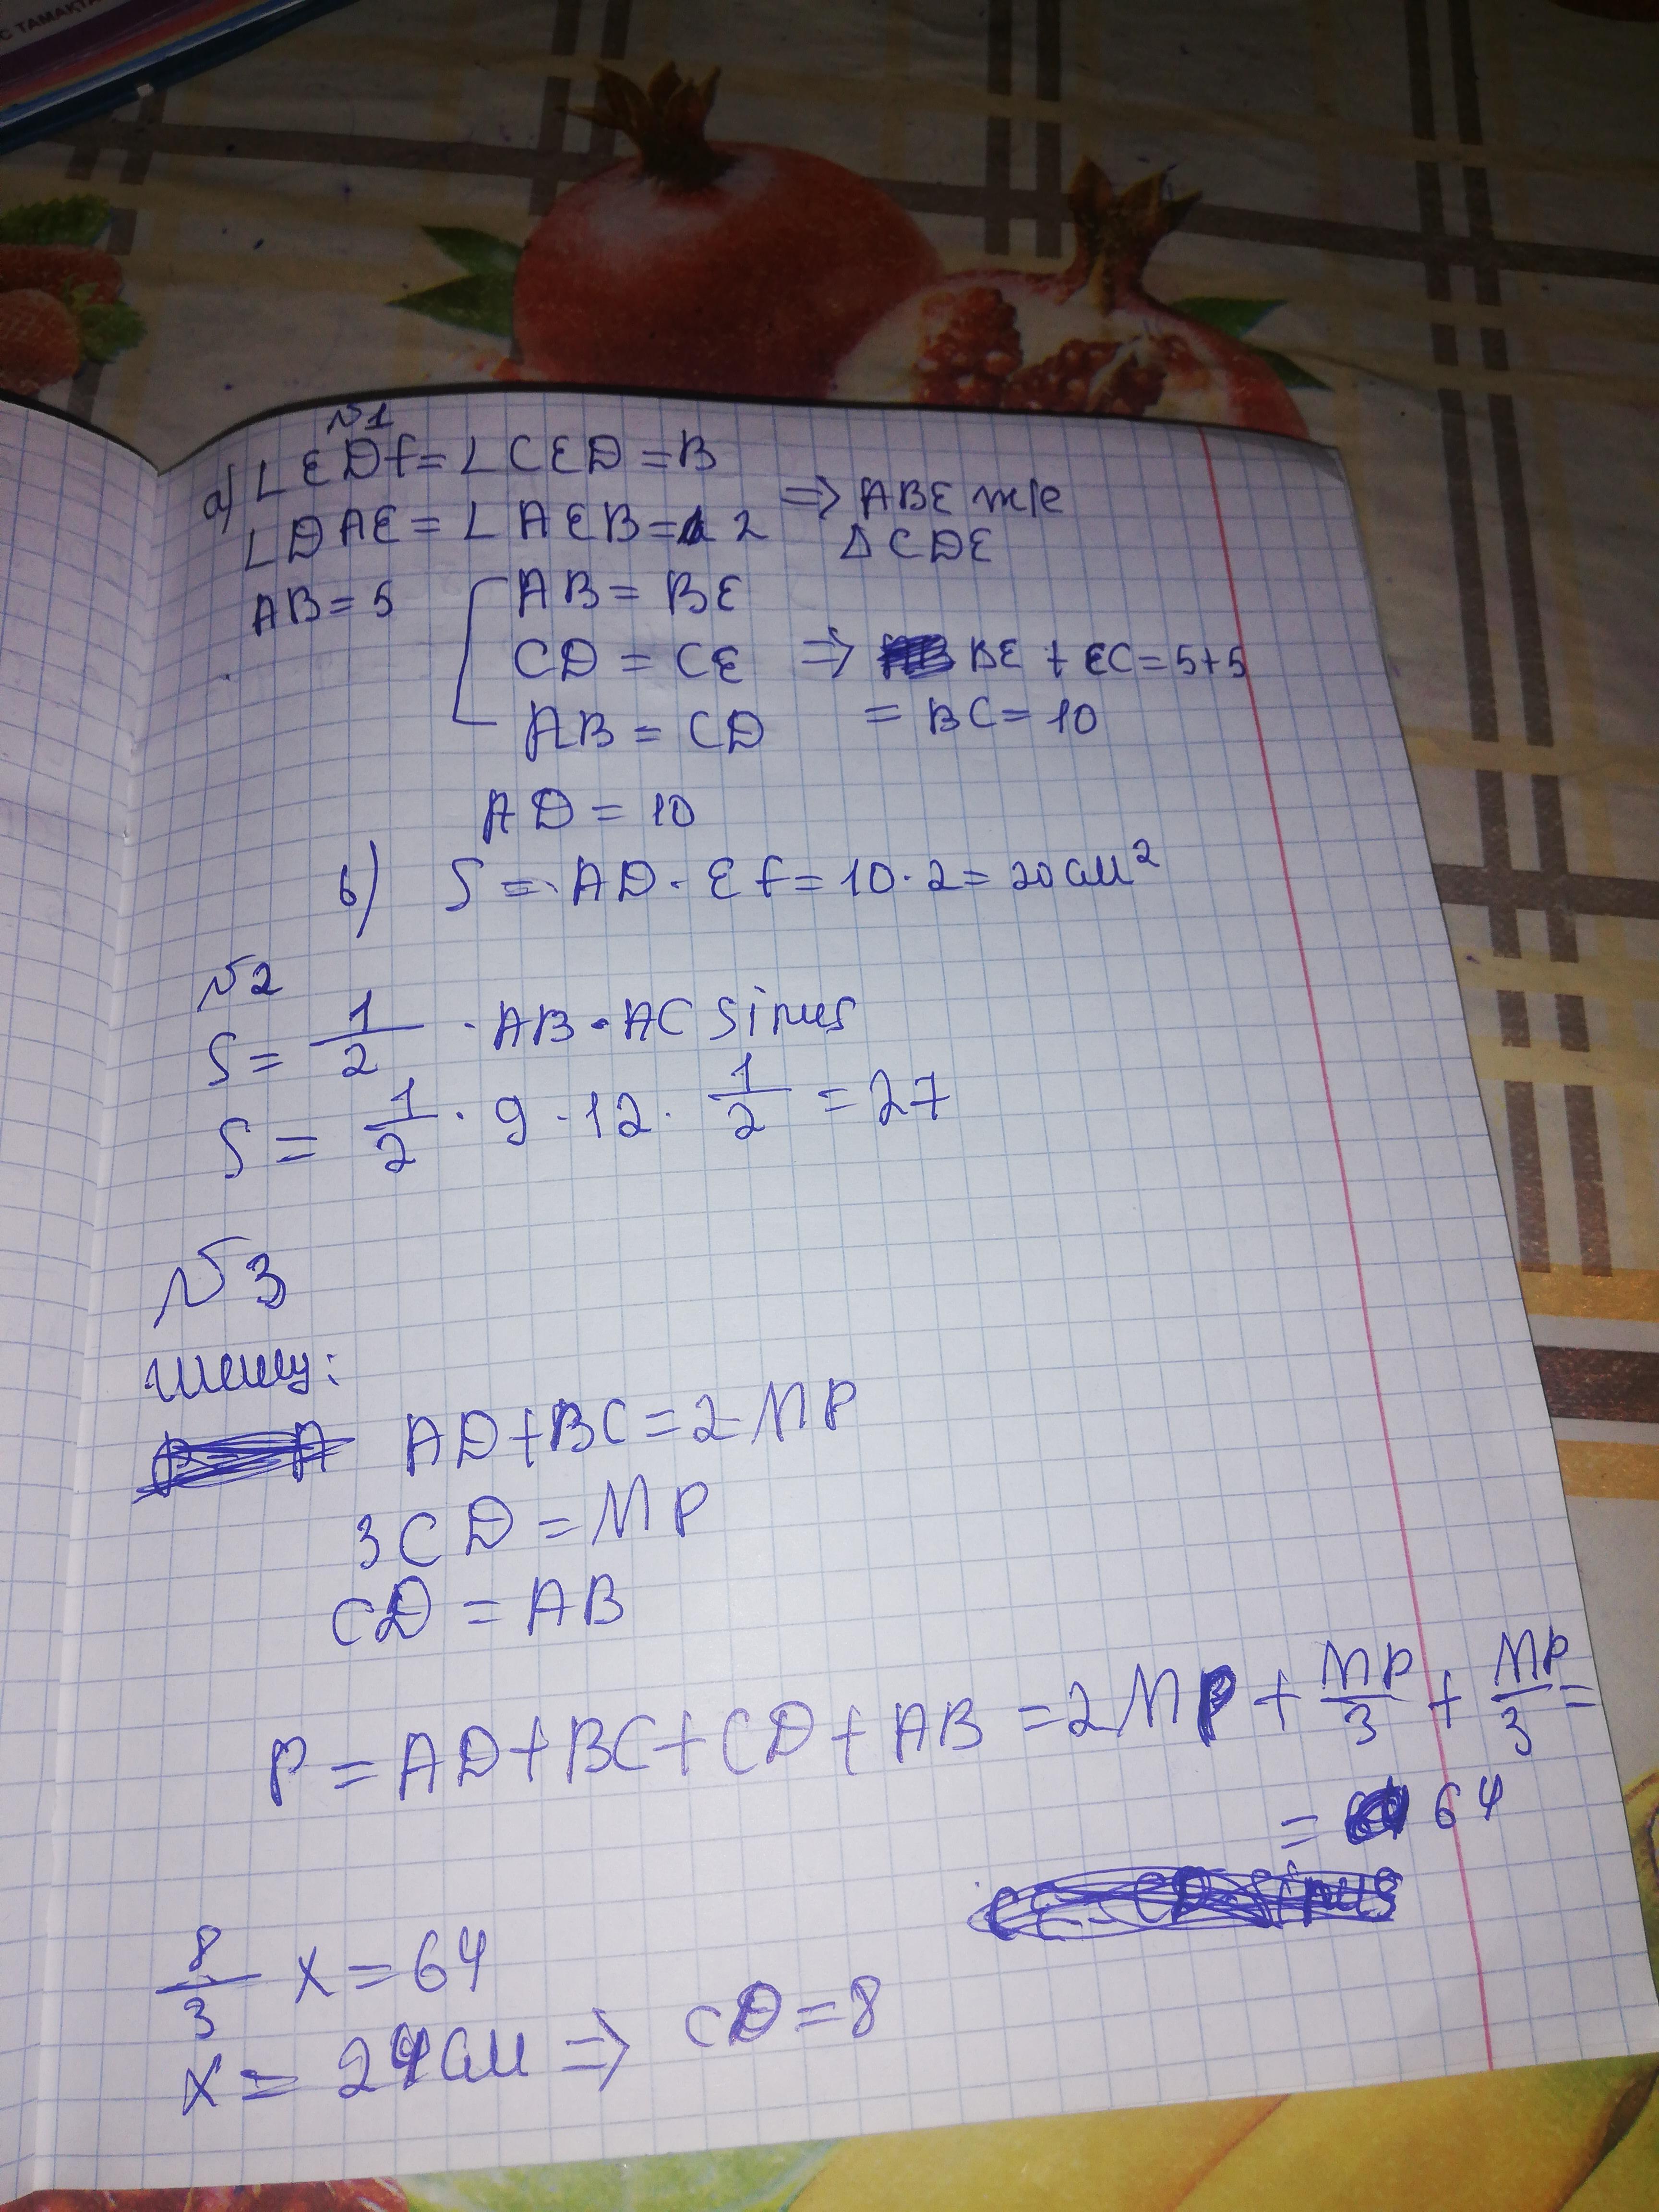 С ТАМАҚТА
№1
а) ∠EDf = ∠CED = B
∠DAE = ∠AEB = 2 ⇒ ABE т/е
ΔCDE
AB = 5
AB = BE
CD = CE ⇒ BE + EC = 5+5
AB = CD = BC = 10
AD = 10
b) S = AD · Ef = 10 · 2 = 20 см²
№2
S = 1/2 · AB · AC sinus
S = 1/2 · 9 · 12 · 1/2 = 27
№3
шешу:
AD + BC = 2 MP
3CD = MP
CD = AB
P = AD + BC + CD + AB = 2MP + MP/3 + MP/3 =
= 64
8/3 x = 64
x = 24 см ⇒ CD = 8